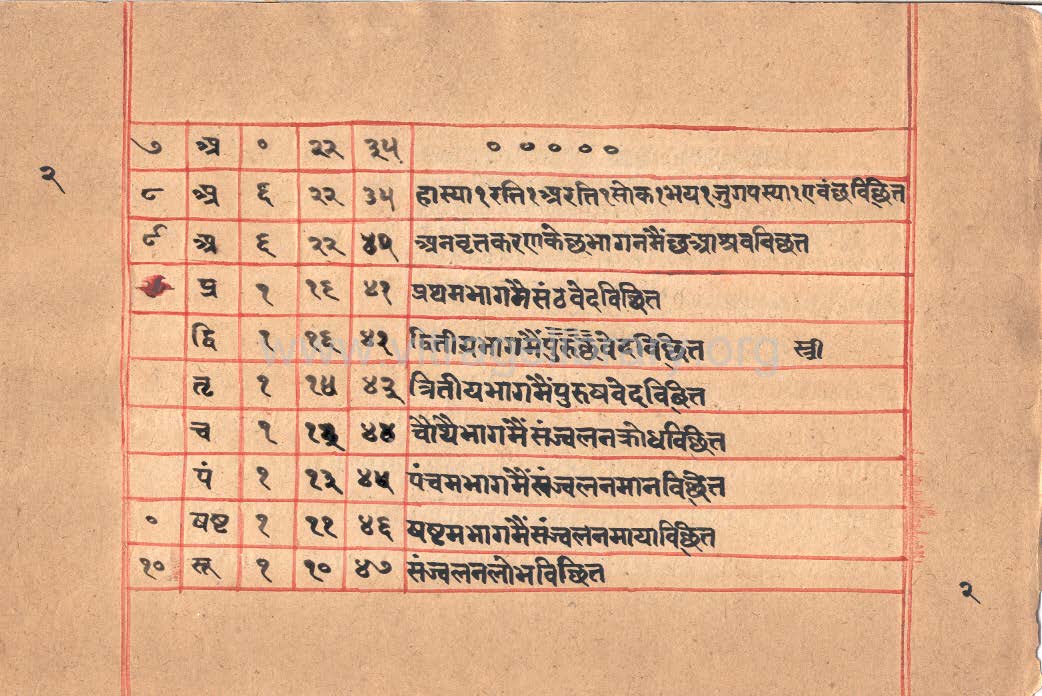 २
७ अ ० २२ ३५ ० ० ० ० ०
८ अ ६ २२ ३५ हास्या१रति१अरति१सोक१भय१जुगपस्या१एवंछविछित
९ अ ६ २२ ४१ अनवृतकरणकेछभागनमैंछआश्रवविछत
प्र १ १६ ४१ प्रथमभागमैसंठवेदविछित
द्वि १ १६ ४२ द्वितीयभागमैंपुरुषवेदविछित स्त्री
तृ १ १४ ४३ त्रितीयभागमैंपुरुषवेदविछित
च १ १३ ४४ चौथैभागमैंसंज्वलनक्रोधविछित
पं १ १२ ४५ पंचमभागमैंसंज्वलनमानविछित
० षष्ट १ ११ ४६ षष्टमभागमैंसंज्वलनमायाविछित
१० सू १ १० ४७ संज्वलनलोभविछित
२